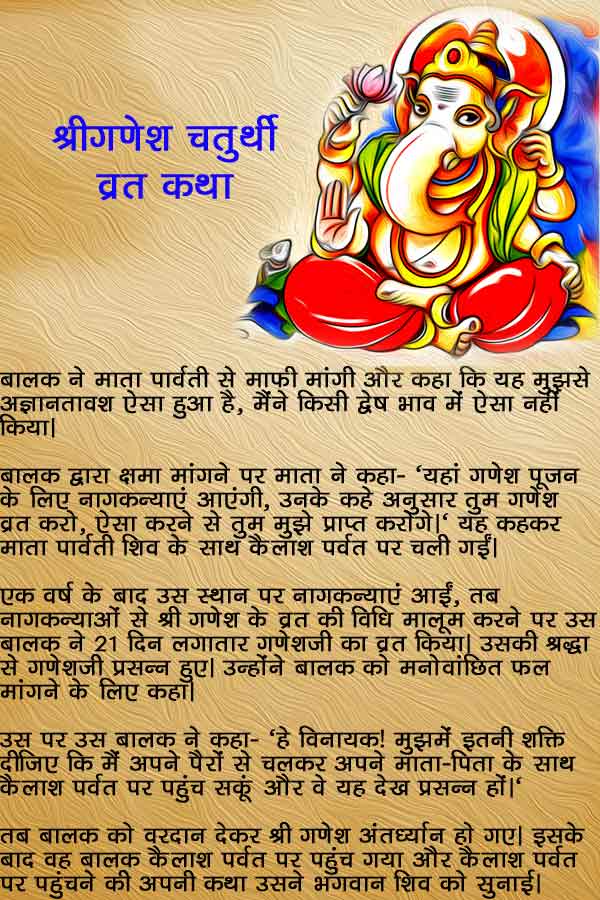 श्रीगणेश चतुर्थी
व्रत कथा
बालक ने माता पार्वती से माफी मांगी और कहा कि यह मुझसे
अज्ञानतावश ऐसा हुआ है, मैंने किसी द्वेष भाव में ऐसा नहीं
किया|
बालक द्वारा क्षमा मांगने पर माता ने कहा- ‘यहां गणेश पूजन
के लिए नागकन्याएं आएंगी, उनके कहे अनुसार तुम गणेश
व्रत करो, ऐसा करने से तुम मुझे प्राप्त करोगे|‘ यह कहकर
माता पार्वती शिव के साथ कैलाश पर्वत पर चली गईं|
एक वर्ष के बाद उस स्थान पर नागकन्याएं आईं, तब
नागकन्याओं से श्री गणेश के व्रत की विधि मालूम करने पर उस
बालक ने 21 दिन लगातार गणेशजी का व्रत किया| उसकी श्रद्धा
से गणेशजी प्रसन्न हुए| उन्होंने बालक को मनोवांछित फल
मांगने के लिए कहा|
उस पर उस बालक ने कहा- ‘हे विनायक! मुझमें इतनी शक्ति
दीजिए कि मैं अपने पैरों से चलकर अपने माता-पिता के साथ
कैलाश पर्वत पर पहुंच सकूं और वे यह देख प्रसन्न हों|‘
तब बालक को वरदान देकर श्री गणेश अंतर्ध्यान हो गए| इसके
बाद वह बालक कैलाश पर्वत पर पहुंच गया और कैलाश पर्वत
पर पहुंचने की अपनी कथा उसने भगवान शिव को सुनाई|